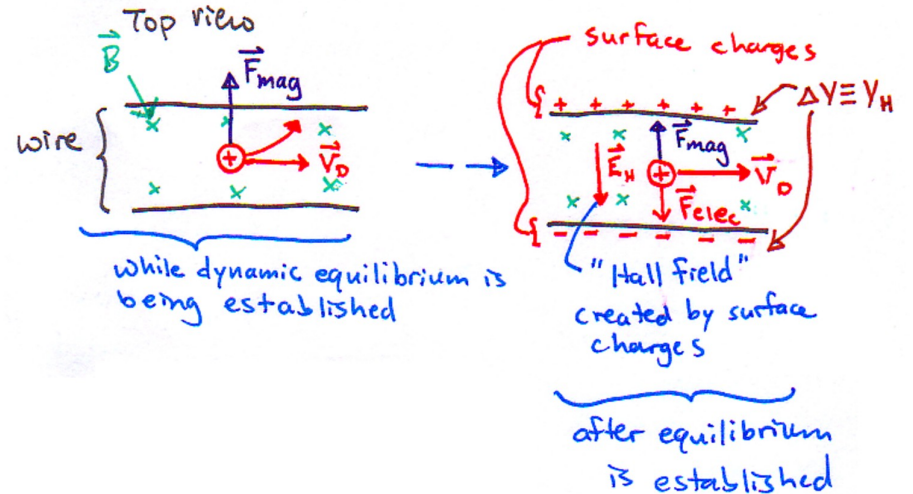 Top view
B
F mag
wire
+
V D
while dynamic equilibrium is
being established
surface charges
+ + + + + +
ΔV ≡ V H
F mag
E H
+
V D
F elec
- - - - - -
"Hall field"
created by surface
charges
after equilibrium
is established